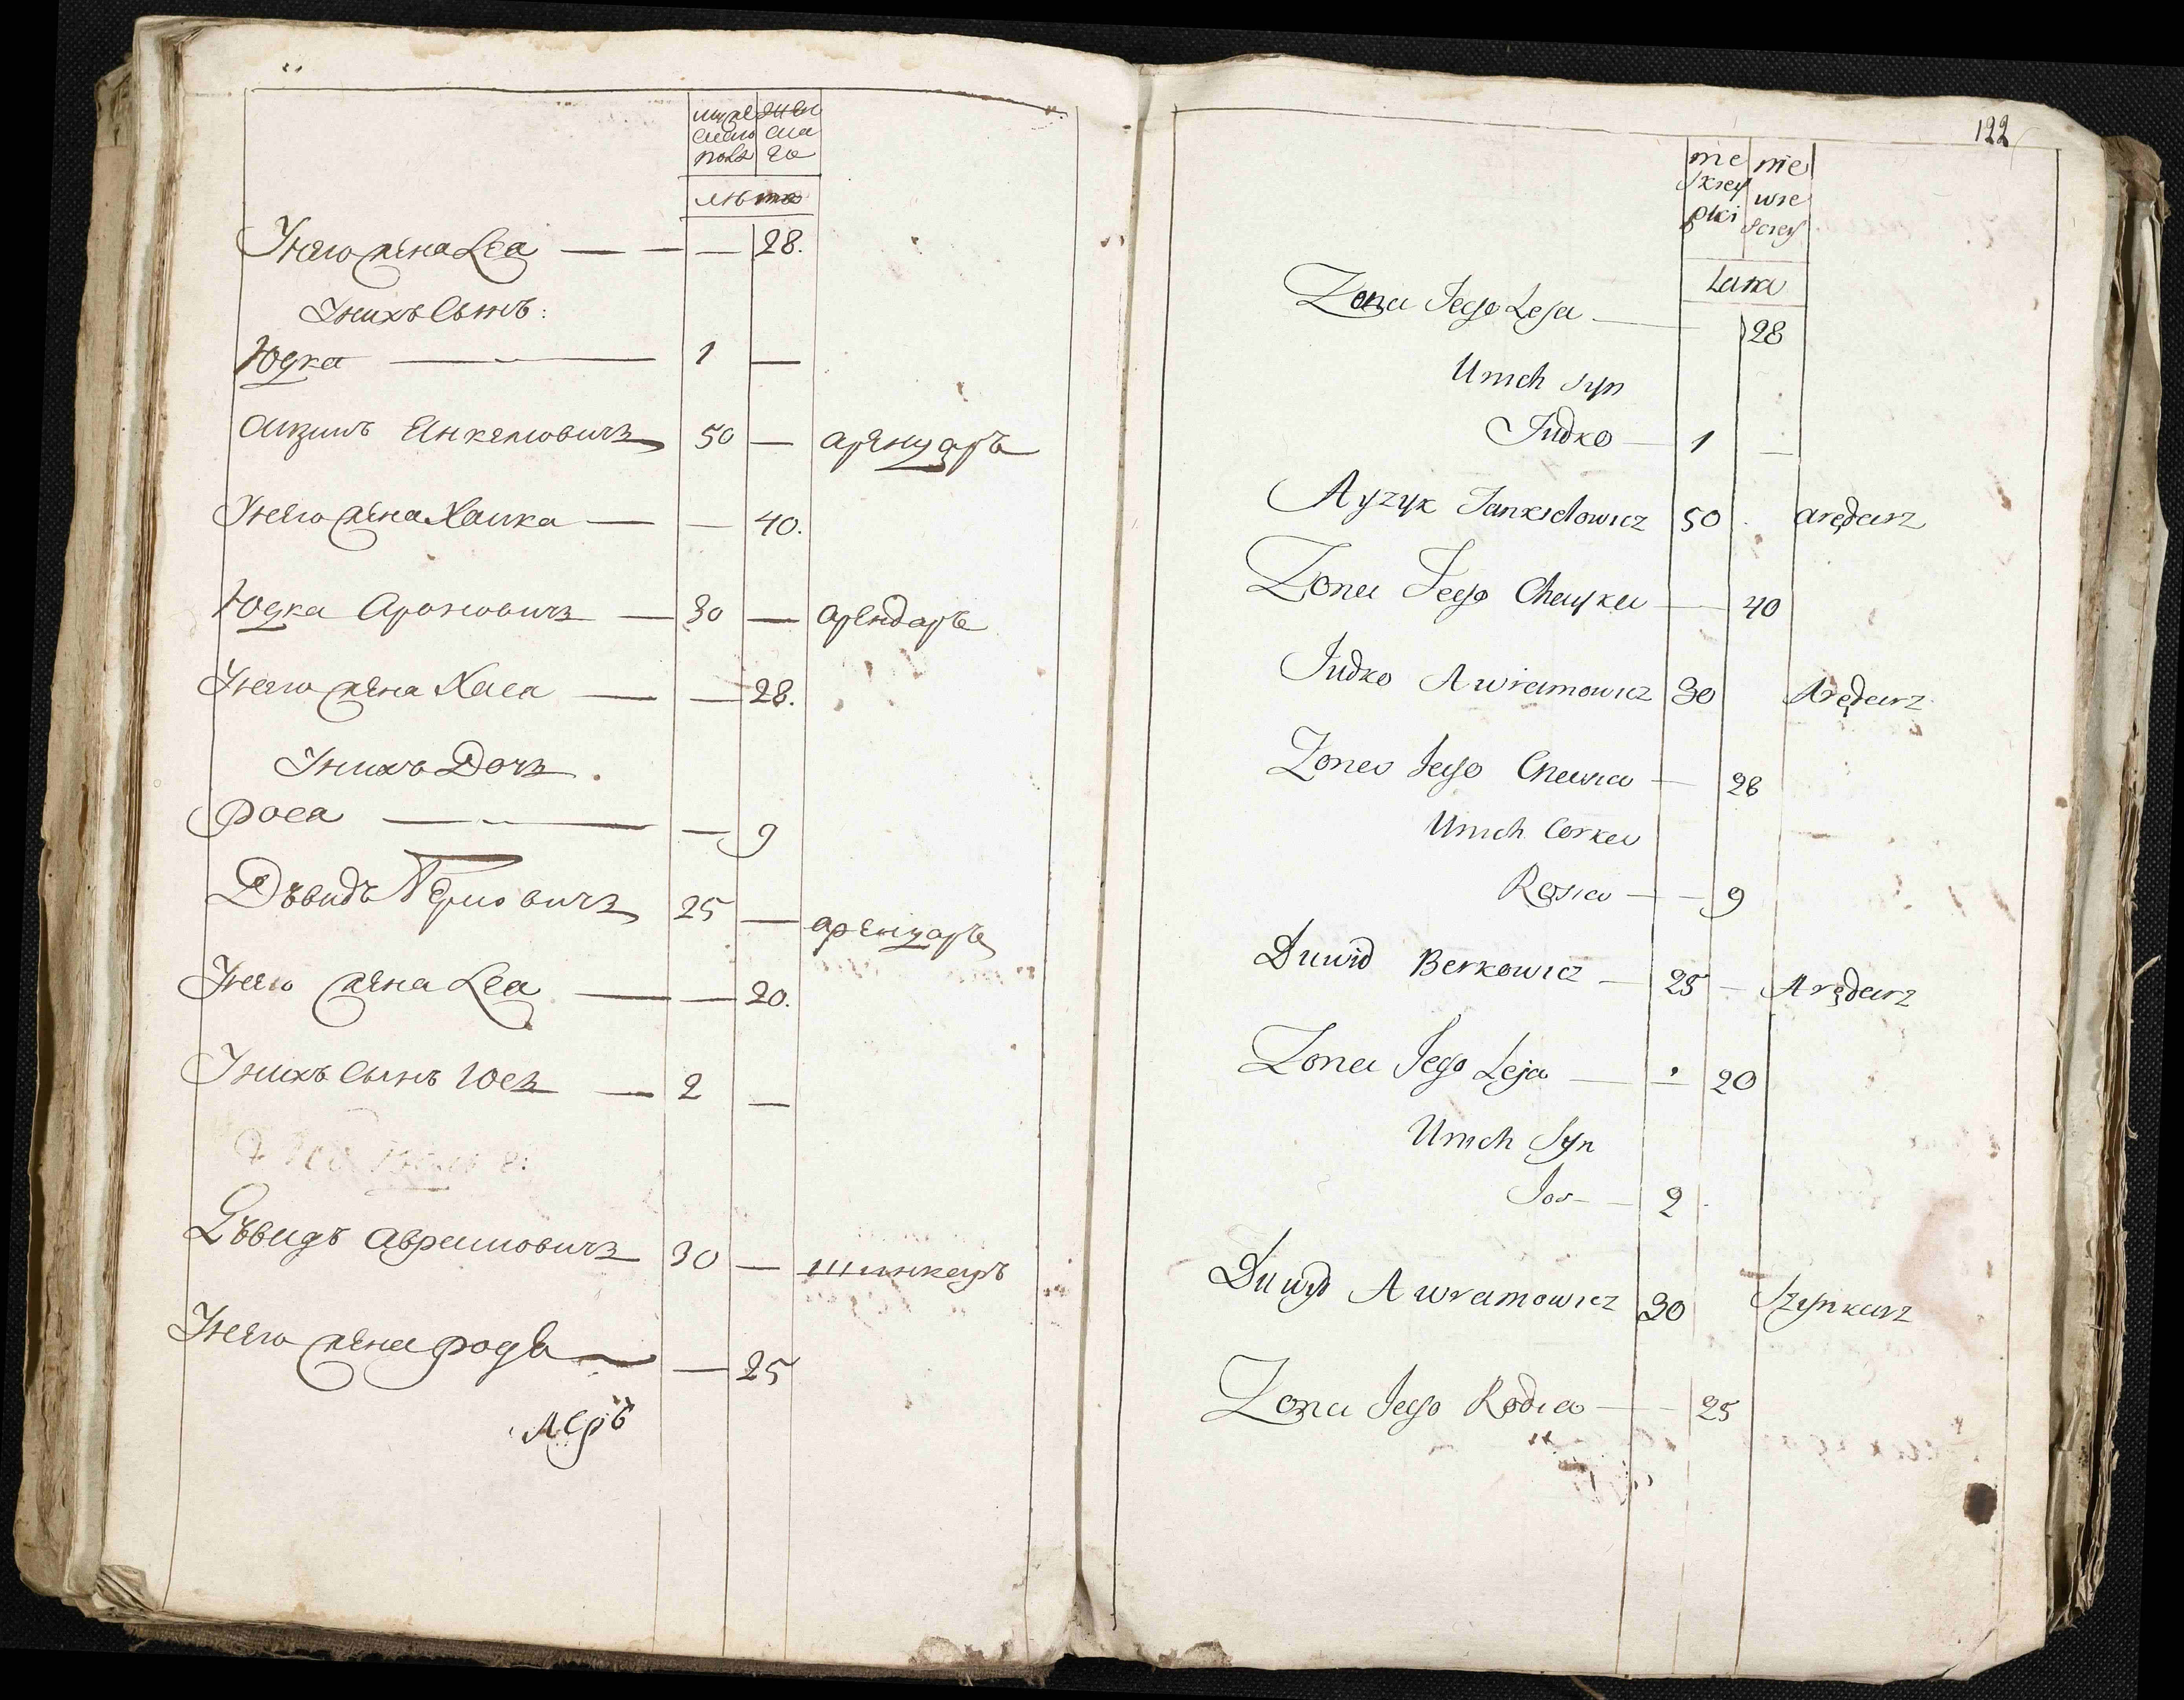 муже женс
ского ска
полъ го
лѣта
У него жена Lea — — — 28.
У нихъ Сынъ:
Юдка — 1 —
Аизикъ Янкелювичъ 50 — арендаръ
У него жена Хаика — — 40.
Юдка Ароновичъ — 30 — арендаръ
У него жена Хаса — — 28.
У нихъ Дочъ.
роса — — 9
Дъвидъ Берковичъ 25 — арендаръ
У него жена Lea — — 20.
У нихъ Сынъ Юсъ — 2 —
Дъвидъ Аврамовичъ 30 — шинкаръ
У него жена рода — — 25
122
me me
skiey wie
płci sciey
Lata
Zona Jego Leja — 28
U nich syn
Judko — 1 —
Ayzyk Jankielowicz 50 arędarz
Zona Jego Chayka — 40
Judko Awramowicz 30 Arędarz
Zona Jego Chasia — 28
U nich Corka
Rosia — — 9
Duwid Berkowicz — 25 — Arędarz
Zona Jego Leja — — 20
U nich Syn
Jos — — 2
Duwyd Awramowicz 30 Szynkarz
Zona Jego Rodia — — 25